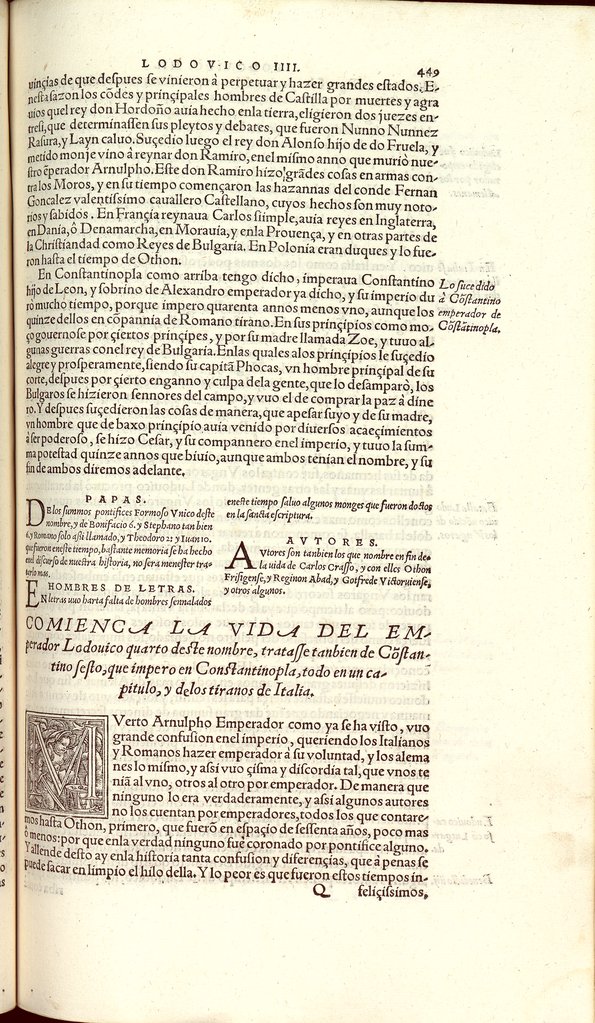 LODOVICO IIII.
449
uinçias de que despues se vinieron à perpetuar y hazer grandes estados. E-
nesta sazon los cõdes y prinçipales hombres de Castilla por muertes y agra
uios quel rey don Hordoño auia hecho enla tierra, eligieron dos juezes en-
tresi, que determinassen sus pleytos y debates, que fueron Nunno Nunnez
Rasura, y Layn caluo. Suçedio luego el rey don Alonso hijo de do Fruela, y
metido monje vino à reynar don Ramiro, enel mismo anno que murió nue-
stro ẽperador Arnulpho. Este don Ramiro hizo grãdes cosas en armas con-
tra los Moros, y en su tiempo començaron las hazannas del conde Fernan
Gonçalez valentissimo cauallero Castellano, cuyos hechos son muy noto-
rios y sabidos. En Françia reynaua Carlos simple, auia reyes en Inglaterra,
en Dania, ô Denamarcha, en Morauia, y enla Prouença, y en otras partes de
la Christiandad como Reyes de Bulgaria. En Polonia eran duques y lo fue-
ron hasta el tiempo de Othon.
En Constantinopla como arriba tengo dicho, imperaua Constantino
hijo de Leon, y sobrino de Alexandro emperador ya dicho, y su imperio du
rò mucho tiempo, porque impero quarenta annos menos vno, aunque los
quinze dellos en cõpannia de Romano tirano. En sus prinçipios como mo-
ço gouernose por çiertos prinçipes, y por su madre llamada Zoe, y tuuo al-
gunas guerras conel rey de Bulgaria. Enlas quales alos prinçipios le suçedio
alegre y prosperamente, siendo su capitã Phocas, vn hombre prinçipal de su
corte, despues por çierto enganno y culpa dela gente, que lo desamparò, los
Bulgaros se hizieron sennores del campo, y vuo el de comprar la paz à dine
ro. Y despues suçedieron las cosas de manera, que apesar suyo y de su madre,
vn hombre que de baxo prinçipio auia venido por diuersos acaeçimientos
à ser poderoso, se hizo Cesar, y su compannero enel imperio, y tuuo la sum-
ma potestad quinze annos que biuio, aunque ambos tenian el nombre, y su
fin de ambos diremos adelante.
Lo sucedido
à Cõstantino
emperador de
Cõstãtinopla.
PAPAS.
DElos summos pontifices Formoso Vnico deste
nombre, y de Bonifacio 6. y Stephano tan bien
6. y Romano solo assi llamado, y Theodoro 2: y Iuan 10.
que fueron eneste tiempo, bastante memoria se ha hecho
enel discurso de nuestra historia, no sera menester tra-
tar mas.
HOMBRES DE LETRAS.
EN letras uuo harta falta de hombres sennalados
eneste tiempo saluo algunos monges que fueron doctos
en la sancta escriptura.
AVTORES.
AVtores son tanbien los que nombre en fin de-
la uida de Carlos Crasso, y con elles Othon
Frisigense, y Reginon Abad, y Gotfrede Victoriuiense,
y otros algunos.
COMIENCA LA VIDA DEL EM-
perador Lodouico quarto deste nombre, tratasse tanbien de Cõstan-
tino sesto, que impero en Constantinopla, todo en un ca-
pitulo, y delos tiranos de Italia.
MVerto Arnulpho Emperador como ya se ha visto, vuo
grande confusion enel imperio, queriendo los Italianos
y Romanos hazer emperador à su voluntad, y los alema
nes lo mismo, y assi vuo çisma y discordia tal, que vnos te
niã al vno, otros al otro por emperador. De manera que
ninguno lo era verdaderamente, y assi algunos autores
no los cuentan por emperadores, todos los que contare-
mos hasta Othon, primero, que fuerõ en espaçio de sessenta años, poco mas
ô menos: por que enla verdad ninguno fuè coronado por pontifice alguno.
Y allende desto ay enla historia tanta confusion y diferençias, que à penas se
puede sacar en limpio el hilo della. Y lo peor es que fueron estos tiempos in-
Q feliçissimos,